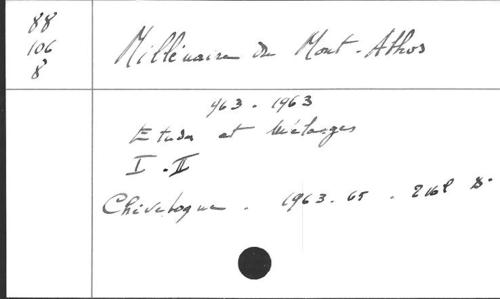 88
106
8
Millénaire du Mont-Athos
963 - 1963
Etudes et Mélanges
I - II
Chevetogne . 1963-65 . 2 vol 8°